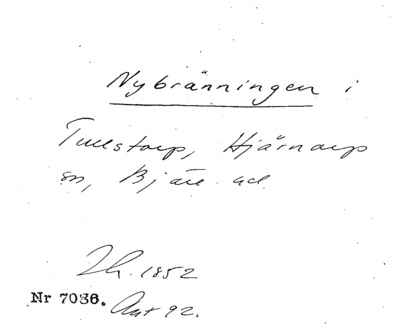 Nybränningen i
Tullstorp, Hjärnarp
sn, Bjäre hd
Th. 1852
Nr 7036. Ant 92.